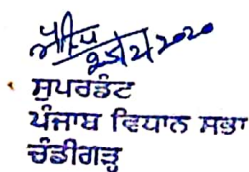 25/2/2020
ਸੁਪਰਡੰਟ
ਪੰਜਾਬ ਵਿਧਾਨ ਸਭਾ
ਚੰਡੀਗੜ੍ਹ